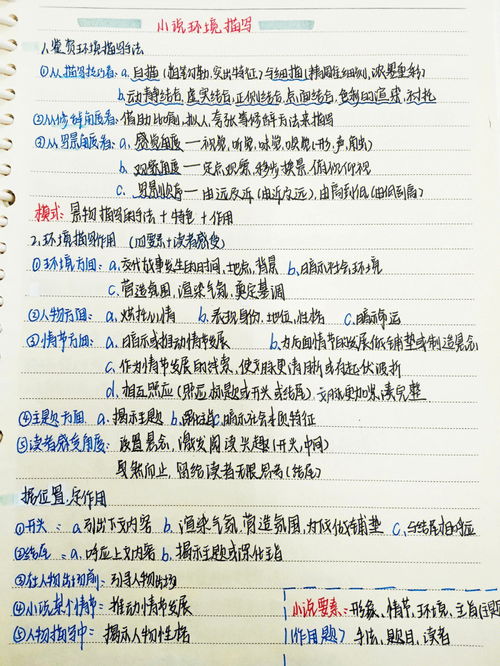 小说环境描写
1.鉴赏环境描写手法
①从描写技巧看: a. 白描 (粗笔勾勒,突出特征) 与细描 (精调细刻,浓墨重彩)
b. 动静结合,虚实结合,正侧结合,点面结合,色彩的渲染,衬托
②从修辞角度看: 借助比喻,拟人,夸张等修辞方法来描写
③从写景角度看: a. 感觉角度——视觉,听觉,味觉,嗅觉(形,声,闻)
b. 观察角度——定点观察,移步换景,俯视仰视
c. 写景顺序——由远及近(由近及远),由高到低(由低到高)
模式: 景物描写的手法 + 特色 + 作用
2.环境描写作用 (四要素+读者感受)
①环境方面: a. 交代故事发生的时间,地点,背景 b. 暗示社会环境
c. 营造氛围,渲染气氛,奠定基调
②人物方面: a. 烘托心情 b. 表现身份,地位,性格 c. 暗示命运
③情节方面: a. 暗示或推动情节发展 b. 为后面情节的发展做铺垫或制造悬念
c. 作为情节发展的线索,使文脉更清晰或有起伏波折
d. 相互照应 (照应标题或开头或结尾) 文脉更加紧凑完整
④主题方面 a. 揭示主题 b. 暗示社会本质特征
⑤读者感受角度: 设置悬念,激发阅读兴趣(开头,中间)
戛然而止,留给读者无限思考(结尾)
据位置,定作用
①开头: a 引出下文内容 b. 渲染气氛,营造氛围,为下文做铺垫 c. 与结尾相呼应
②结尾: a. 呼应上文内容 b. 揭示主题或深化主旨
③在人物出场前: 引导人物出场
④小说某个情节: 推动情节发展
⑤人物描写中: 揭示人物性格
小说要素: 形象,情节,环境,主旨(主题)
(作用题) 手法,题目,读者